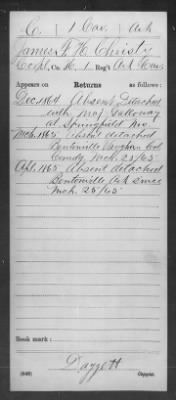 C. | 1 Cav. | Ark
James F. H. Christy
Corpl, Co. K, Reg't Ark Cav.
Appears on
Returns
as follows:
Dec. 1864 Absent Detached
with Maj Galloway
at Springfield Mo.
Mch. 1865 Absent detached
Bentonville Vaughan Col
Comdg Mch 25/65
Apl. 1865 Absent detached
Bentonville Ark since
Mch. 25/65
Book mark:
Daggett
(646)
Copyist.